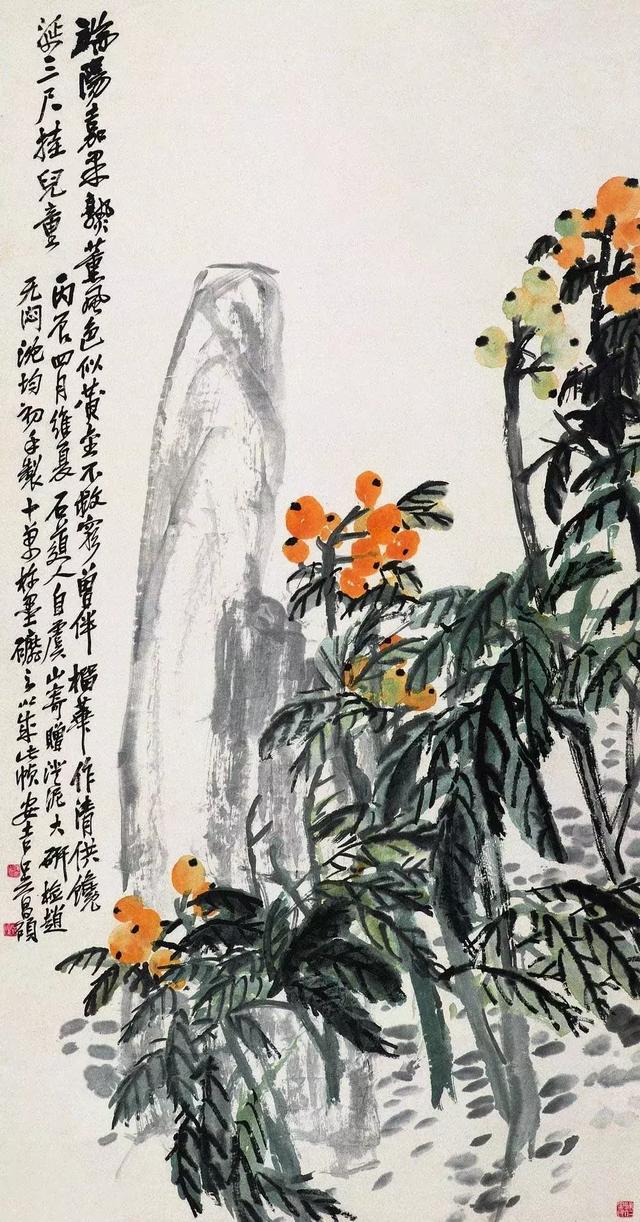 端陽嘉果熟薰風色似黃金不救窮曾伴榴華作清供饞
涎三尺挂兒童
丙辰四月維夏石道人自虞山寄贈澄泥大研檢趙
无悶沈均初手製十萬杵墨礲之以成此幀安吉吳昌碩